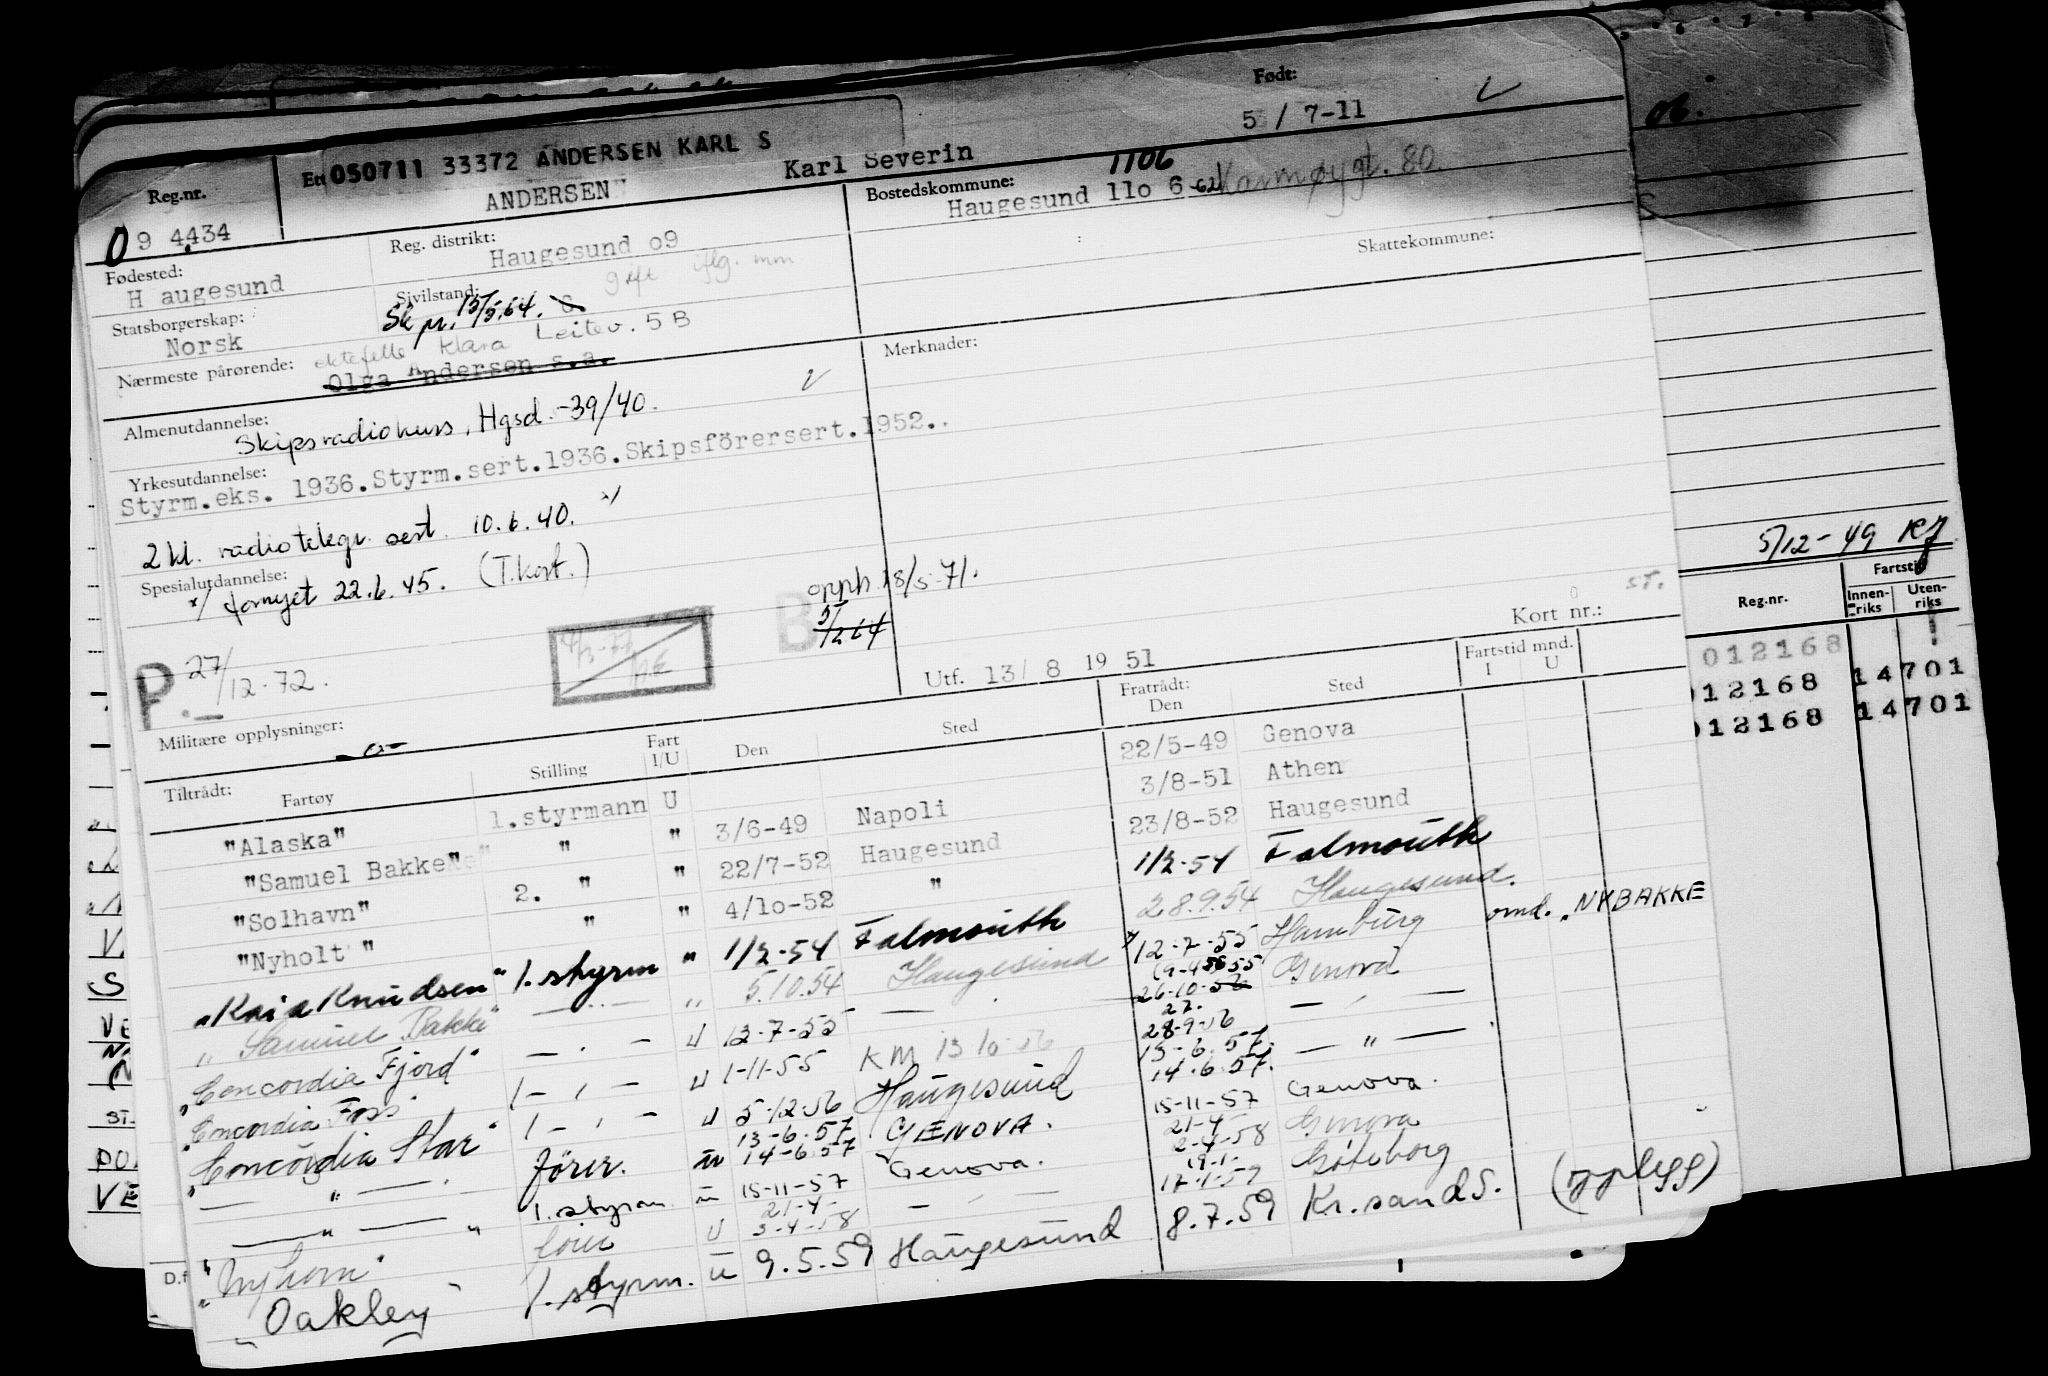 Født:
5 / 7-11
Reg.nr.
Ett
050711 33372 ANDERSEN KARL S
ANDERSEN
Karl Severin
09 4434
Reg. distrikt:
Haugesund o9
Bostedskommune:
1106
Haugesund 11o 6 -62
Karmøygt. 80.
Skattekommune:
Fødested:
H augesund
Sivilstand:
Sk pr. 13/5.64.
gift iflg. mm
Statsborgerskap:
Norsk
Nærmeste pårørende:
ektefelle Klara Leitev. 5 B
Olga Andersen s.a.
Merknader:
Almenutdannelse:
Skipsradiokurs, Hgsd. -39/40.
Yrkesutdannelse:
Styrm.eks. 1936.Styrm.sert.1936.Skipsförersert.1952..
2 kl. radiotelegr. sert. 10.6.40. x/
Spesialutdannelse:
x/ fornyet 22.6.45. (T.kort.)
opph. 18/5-71.
B
5/2 64
P. 27/12-72.
Militære opplysninger:
Utf. 13/ 8 19 51
Kort nr.:
ST.
Fratrådt:
Den
Sted
Fartstid mnd.
I U
Tiltrådt:
Fartøy
Stilling
Fart
I/U
Den
Sted
22/5-49 Genova
"Alaska" 1.styrmann U 3/6-49 Napoli 3/8-51 Athen
"Samuel Bakke" " " 22/7-52 Haugesund 23/8-52 Haugesund
"Solhavn" 2. " " 4/1o-52 " 1/2-54 Falmouth
"Nyholt" " " 1/2-54 Falmouth 28.9.54 Haugesund.
"Kaia Knudsen" 1. styrm " 5.10.54 Haugesund 12-7-55 Hamburg omd. "NYBAKKE
"Samuel Bakke" " 13-7-55 26-10-56 Genova
"Concordia Fjord" 1-11-55 KM 13 10-56 28-9-56
"Concordia Foss" 5-12-56 Haugesund 13-6-57.
14-6-57.
"Concordia Star" fører. 13-6-57
14-6-57 GENOVA. 15-11-57 Genova.
1. styrm. 15-11-57 Genova. 21-4-
2-4-58 Genova
21-4-
3-4-58 17-1-59 Göteborg
"Oakley" 1. styrm. u 9.5.59 Haugesund 8.7.59 Kr.sand S. (opplegg)
5/12-49
Reg.nr.
Fartstid
Innen-
riks
Uten-
riks
012168
012168 14701
012168 14701